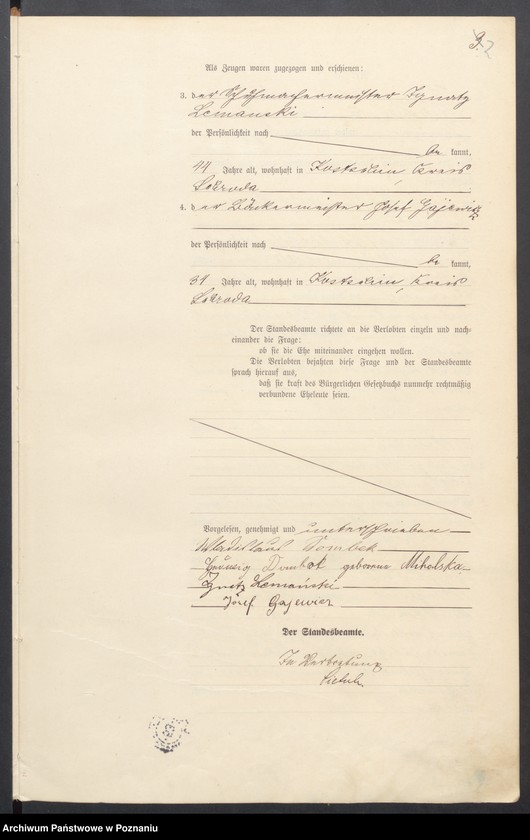 Als Zeugen waren zugezogen und erschienen:
3. der Schuhmachermeister Ignatz
Lemanski
der Persönlichkeit nach
be kannt,
44 Jahre alt, wohnhaft in Kostschin, Kreis
Schroda
4. der Bäckermeister Josef Gajewicz
der Persönlichkeit nach
be kannt,
31 Jahre alt, wohnhaft in Kostschin, Kreis
Schroda
Der Standesbeamte richtete an die Verlobten einzeln und nach-
einander die Frage:
ob sie die Ehe miteinander eingehen wollen.
Die Verlobten bejahten diese Frage und der Standesbeamte
sprach hierauf aus,
daß sie kraft des Bürgerlichen Gesetzbuchs nunmehr rechtmäßig
verbundene Eheleute seien.
Vorgelesen, genehmigt und unterschrieben
Wladislaus Dombek
Dombek geborene Mihalska
Ignatz Lemański
Józef Gajewicz
Der Standesbeamte.
In Vertretung
Archiwum Państwowe w Poznaniu